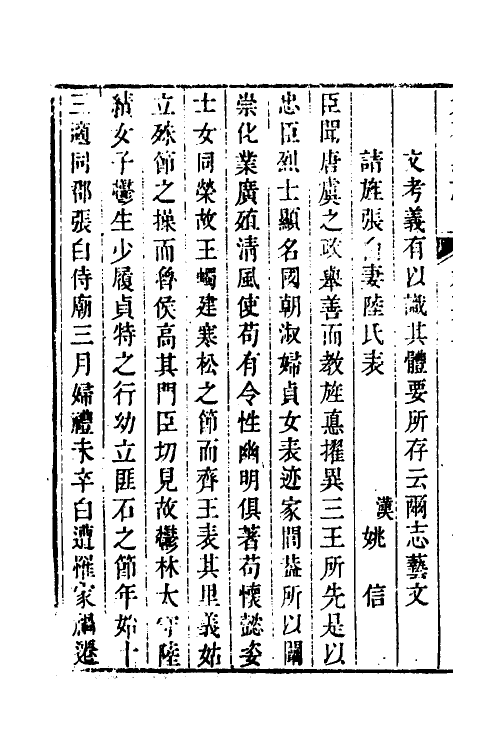 文考義有以識其體要所存云爾志藝文
請旌張白妻陸氏表
漢姚信
臣聞唐虞之政舉善而教旌悳擢異三王所先是以
忠臣烈士顯名國朝淑婦貞女表迹家閭蓋所以闡
崇化業廣殖清風使苟有令性幽明俱著苟懷懿姿
士女同榮故王蠋建寒松之節而齊王表其里義姑
立殊節之操而魯侯高其門臣切見故鬱林太守陸
績女子鬱生少履貞特之行幼立匪石之節年始十
三適同郡張白侍廟三月婦禮未卒白遭罹家禍遷